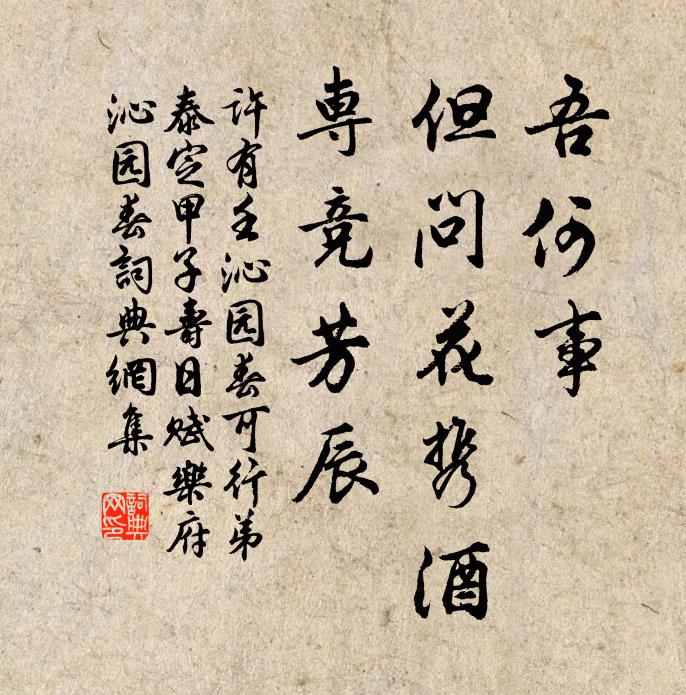 吾何事
但问花携酒
専竞芳辰
许有壬沁园春可行弟
泰定甲子寿日赋乐府
沁园春詞典網集
詞典网印